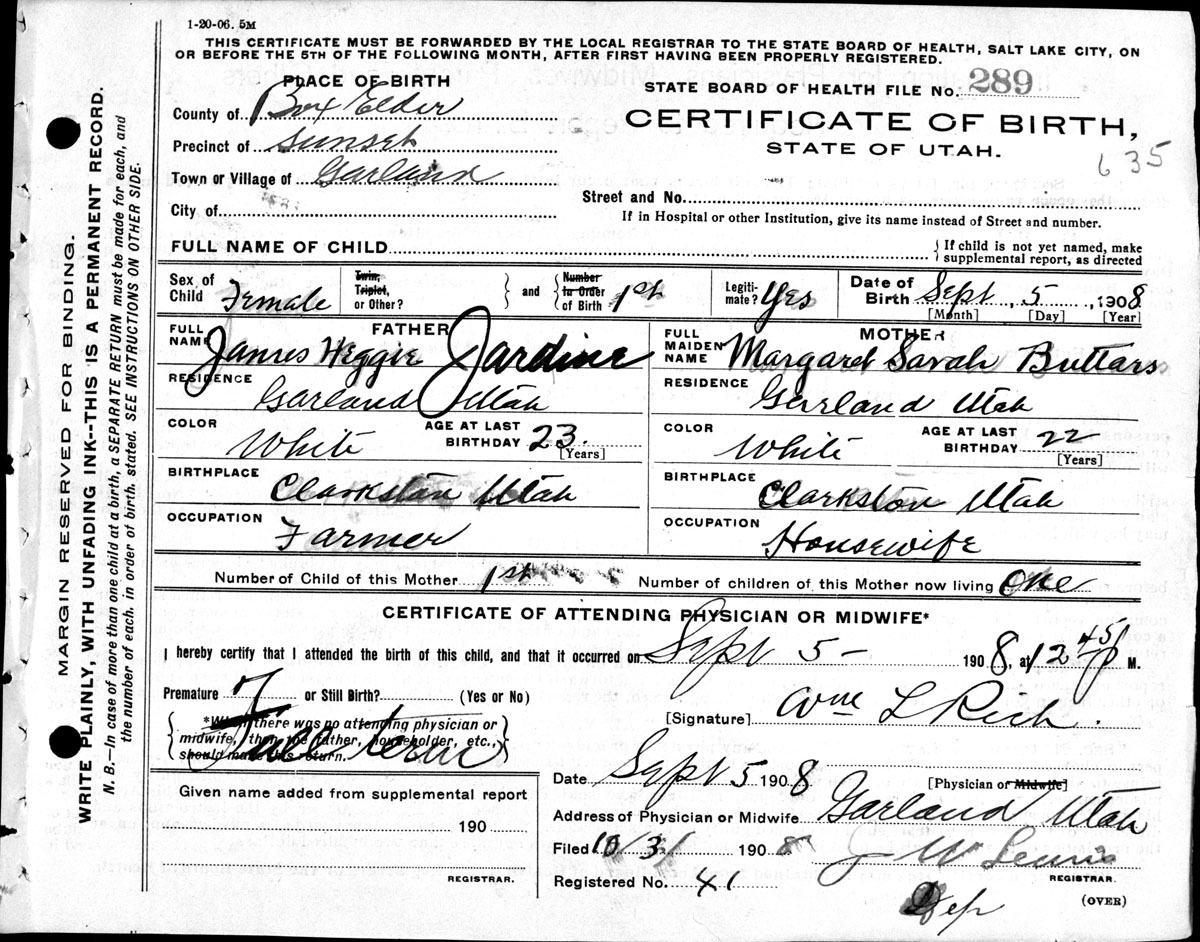 1-20-06. 5M
THIS CERTIFICATE MUST BE FORWARDED BY THE LOCAL REGISTRAR TO THE STATE BOARD OF HEALTH, SALT LAKE CITY, ON
OR BEFORE THE 5TH OF THE FOLLOWING MONTH, AFTER FIRST HAVING BEEN PROPERLY REGISTERED.
PLACE OF BIRTH
STATE BOARD OF HEALTH FILE No. 289
County of Box Elder
CERTIFICATE OF BIRTH,
STATE OF UTAH.
635
Precinct of Sunset
Town or Village of Garland
Street and No.
City of
If in Hospital or other Institution, give its name instead of Street and number.
FULL NAME OF CHILD
{ If child is not yet named, make
supplemental report, as directed
Sex of Child Female
Twin, Triplet, or Other?
} and {
Number in Order of Birth 1st
Legiti-mate? Yes
Date of Birth Sept, 5, 1908
[Month] [Day] [Year]
FATHER
FULL NAME James Heggie Jardine
RESIDENCE
Garland Utah
COLOR White
AGE AT LAST BIRTHDAY 23.
[Years]
BIRTHPLACE
Clarkston Utah
OCCUPATION
Farmer
MOTHER
FULL MAIDEN NAME Margaret Sarah Buttars
RESIDENCE
Garland Utah
COLOR White
AGE AT LAST BIRTHDAY 22
[Years]
BIRTHPLACE
Clarkston Utah
OCCUPATION
Housewife
Number of Child of this Mother 1st Number of children of this Mother now living One
CERTIFICATE OF ATTENDING PHYSICIAN OR MIDWIFE*
I hereby certify that I attended the birth of this child, and that it occurred on Sept 5 - 1908, at 12 45 P M.
Premature or Still Birth? (Yes or No)
{ *When there was no attending physician or
midwife, then the father, householder, etc.,
should make this return. }
term
[Signature] Wm L Rich.
Date Sept 5 1908 [Physician or Midwife]
Given name added from supplemental report
190
REGISTRAR.
Address of Physician or Midwife Garland Utah
Filed 10/31 1908 J W Lewis
REGISTRAR.
Registered No. 41
Dep
(OVER)
MARGIN RESERVED FOR BINDING.
WRITE PLAINLY, WITH UNFADING INK--THIS IS A PERMANENT RECORD.
N. B.—In case of more than one child at a birth, a SEPARATE RETURN must be made for each, and
the number of each, in order of birth, stated. SEE INSTRUCTIONS ON OTHER SIDE.